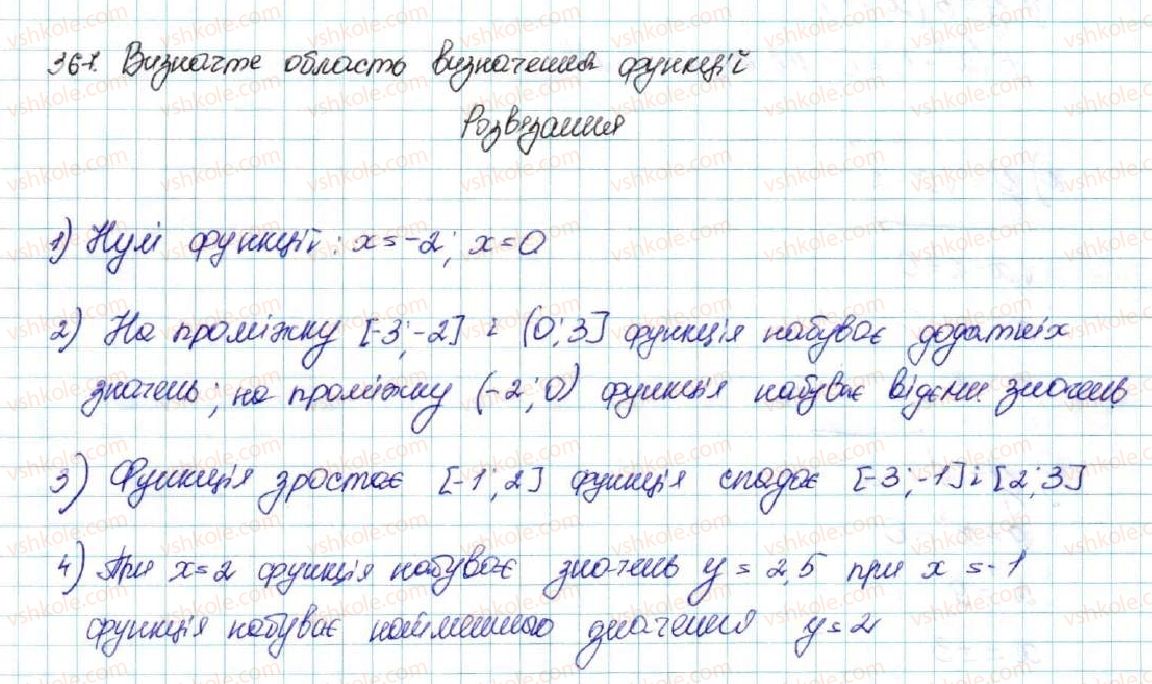 367. Визначте область визначення функцій
Розвязання
1) Нулі функції: x=-2; x=0
2) На проміжку [-3;-2] і (0;3] функція набуває додатніх
значень; на проміжку (-2;0) функція набуває відємн значень
3) Функція зростає [-1;2] функція спадає [-3;-1] і [2;3]
4) При x=2 функція набуває значень y=2,5 при x=-1
функція набуває найменшого значення y=2